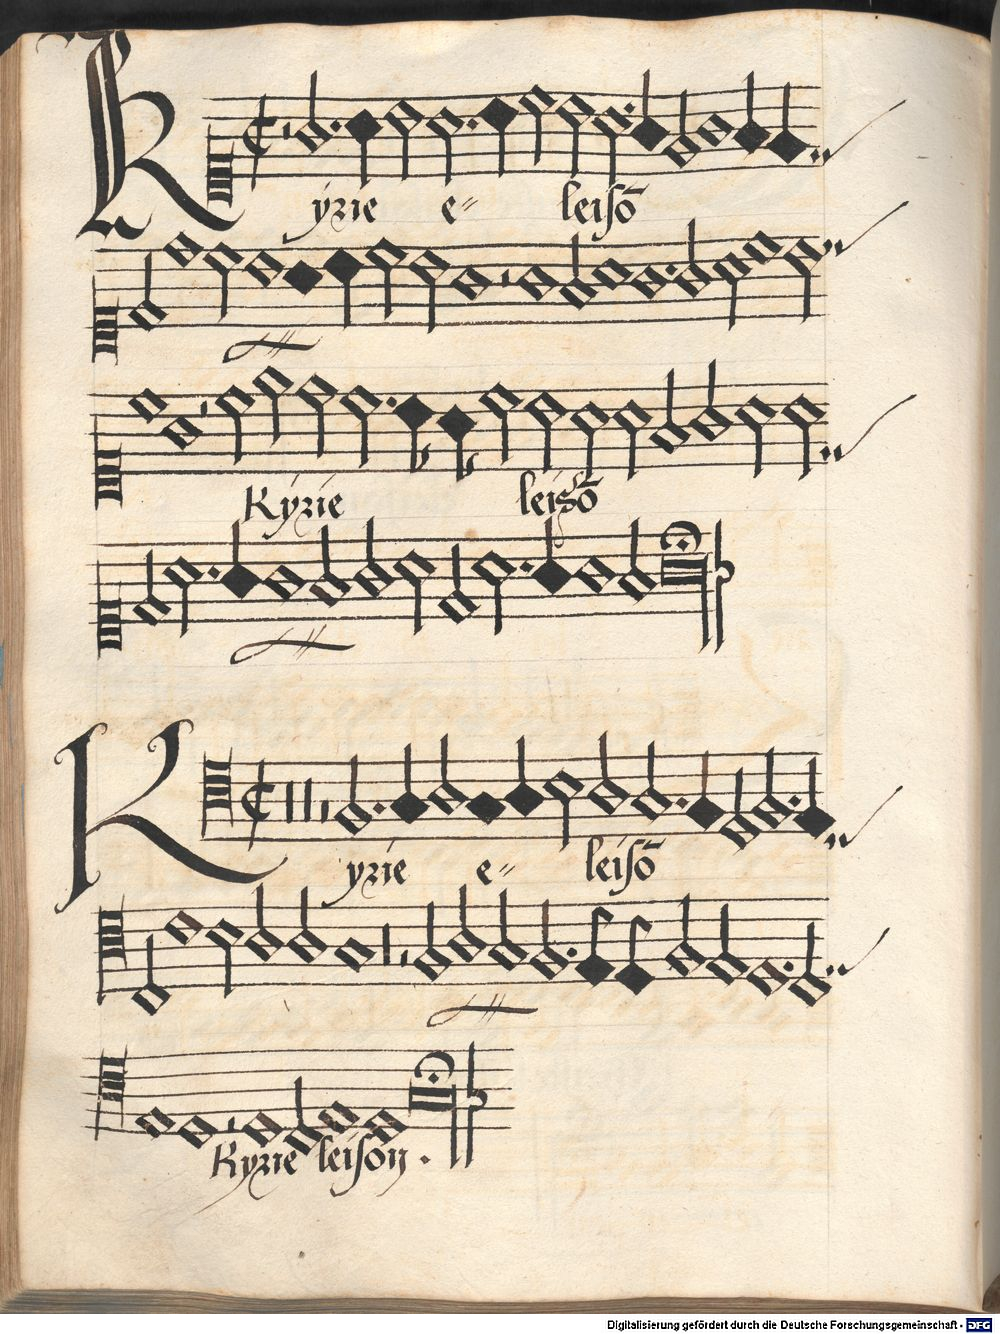 Kyrie e= leisō
Kyrie leisō
Kyrie e= leisō
Kyrie leison.
Digitalisierung gefördert durch die Deutsche Forschungsgemeinschaft - DFG